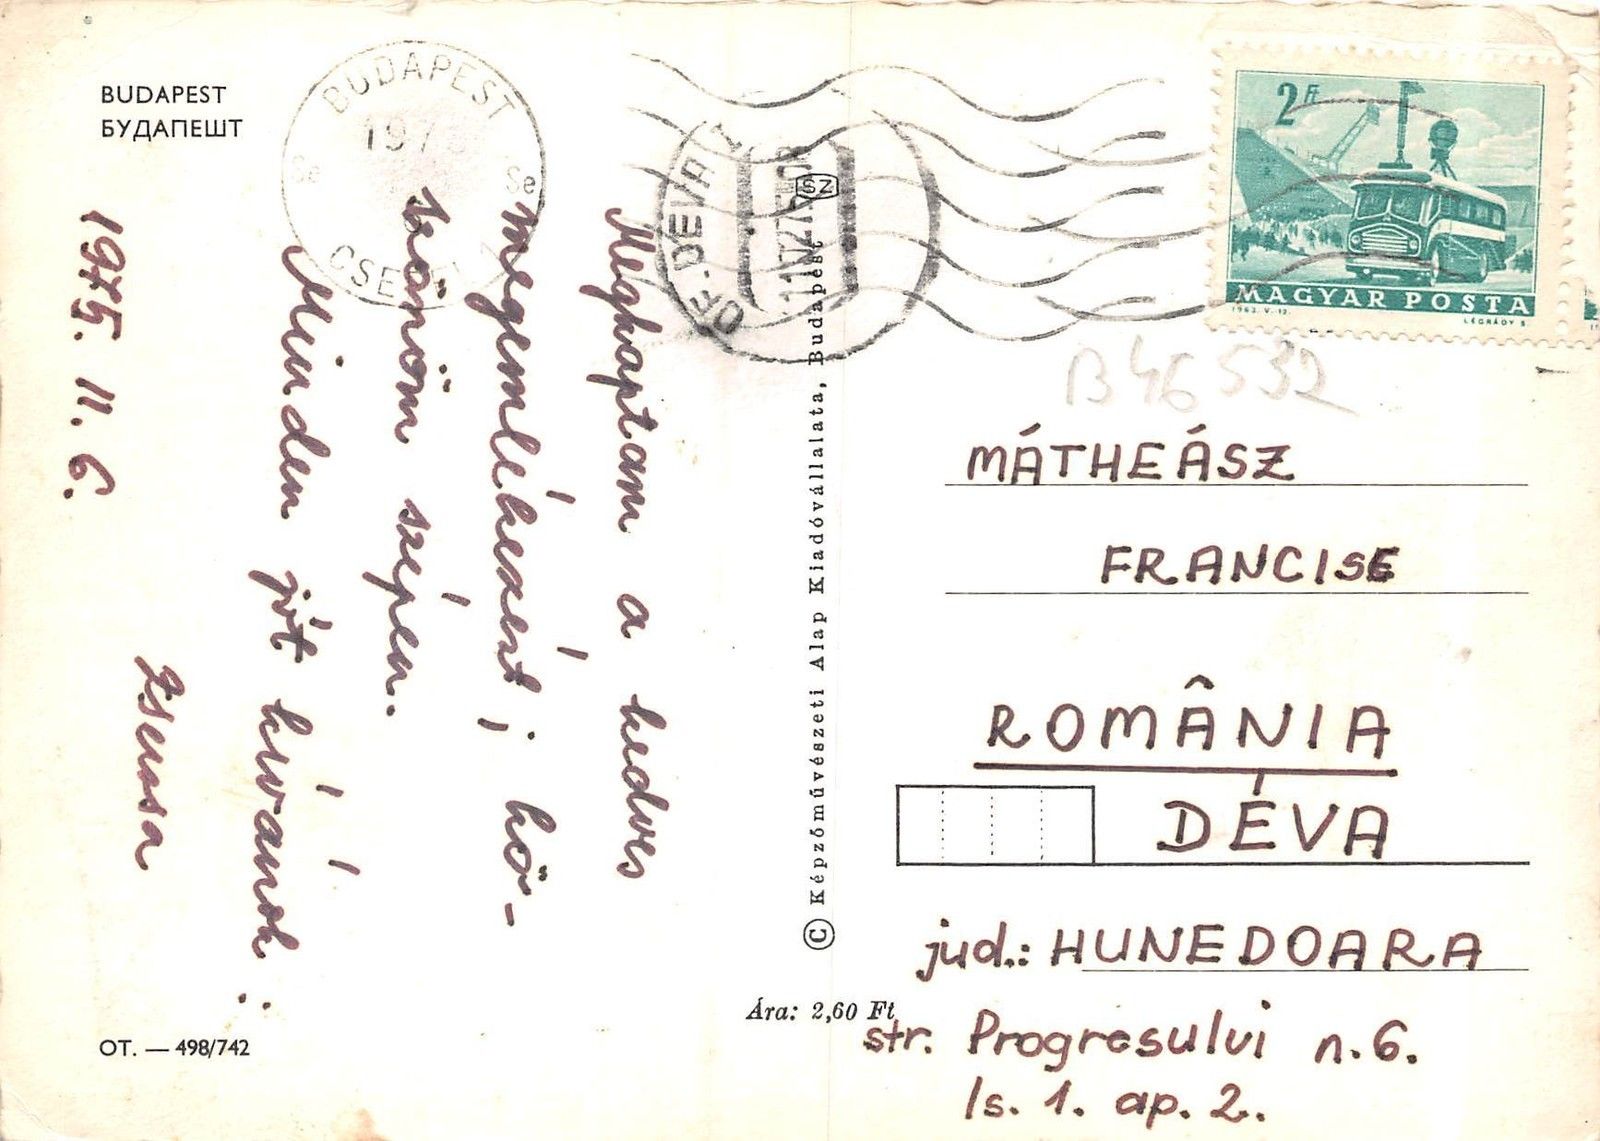 BUDAPEST
БУДАПЕШТ
BUDAPEST
197
Se Se
CSEPEL
OF. DEVA 1
SZ
2 Ft
MAGYAR POSTA
1963. V. 12.
LÉGRÁDY S.
B 46 532
Megkaptam a kedves
megemlékezést, kö-
szönöm szépen.
Minden jót kívánok:
Zsuzsa
1975. 11. 6.
© Képzőművészeti Alap Kiadóvállalata, Budapest
MÁTHEÁSZ
FRANCISE
ROMÂNIA
DÉVA
jud.: HUNEDOARA
Ára: 2,60 Ft
str. Progresului n. 6.
ls. 1. ap. 2.
OT. — 498/742